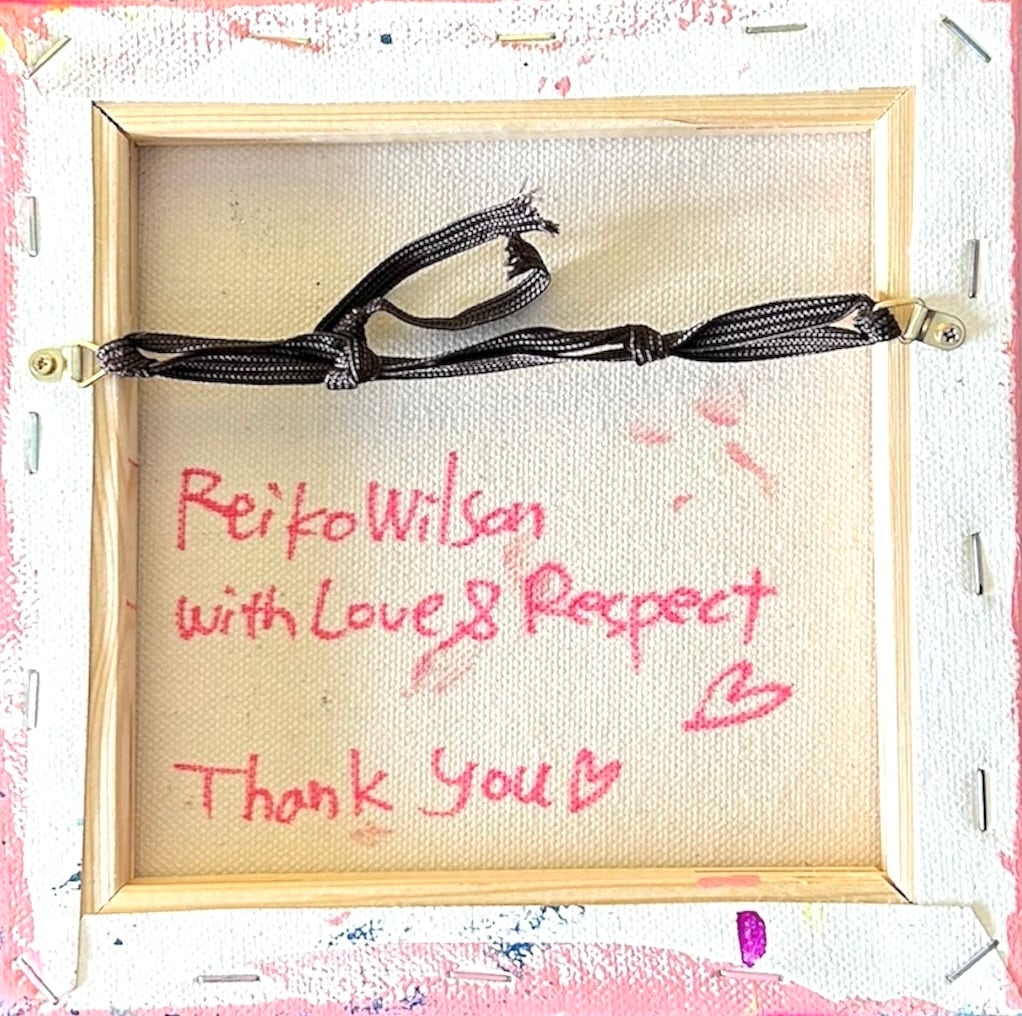 Reiko Wilson
with Love & Respect
♡
Thank you ♡